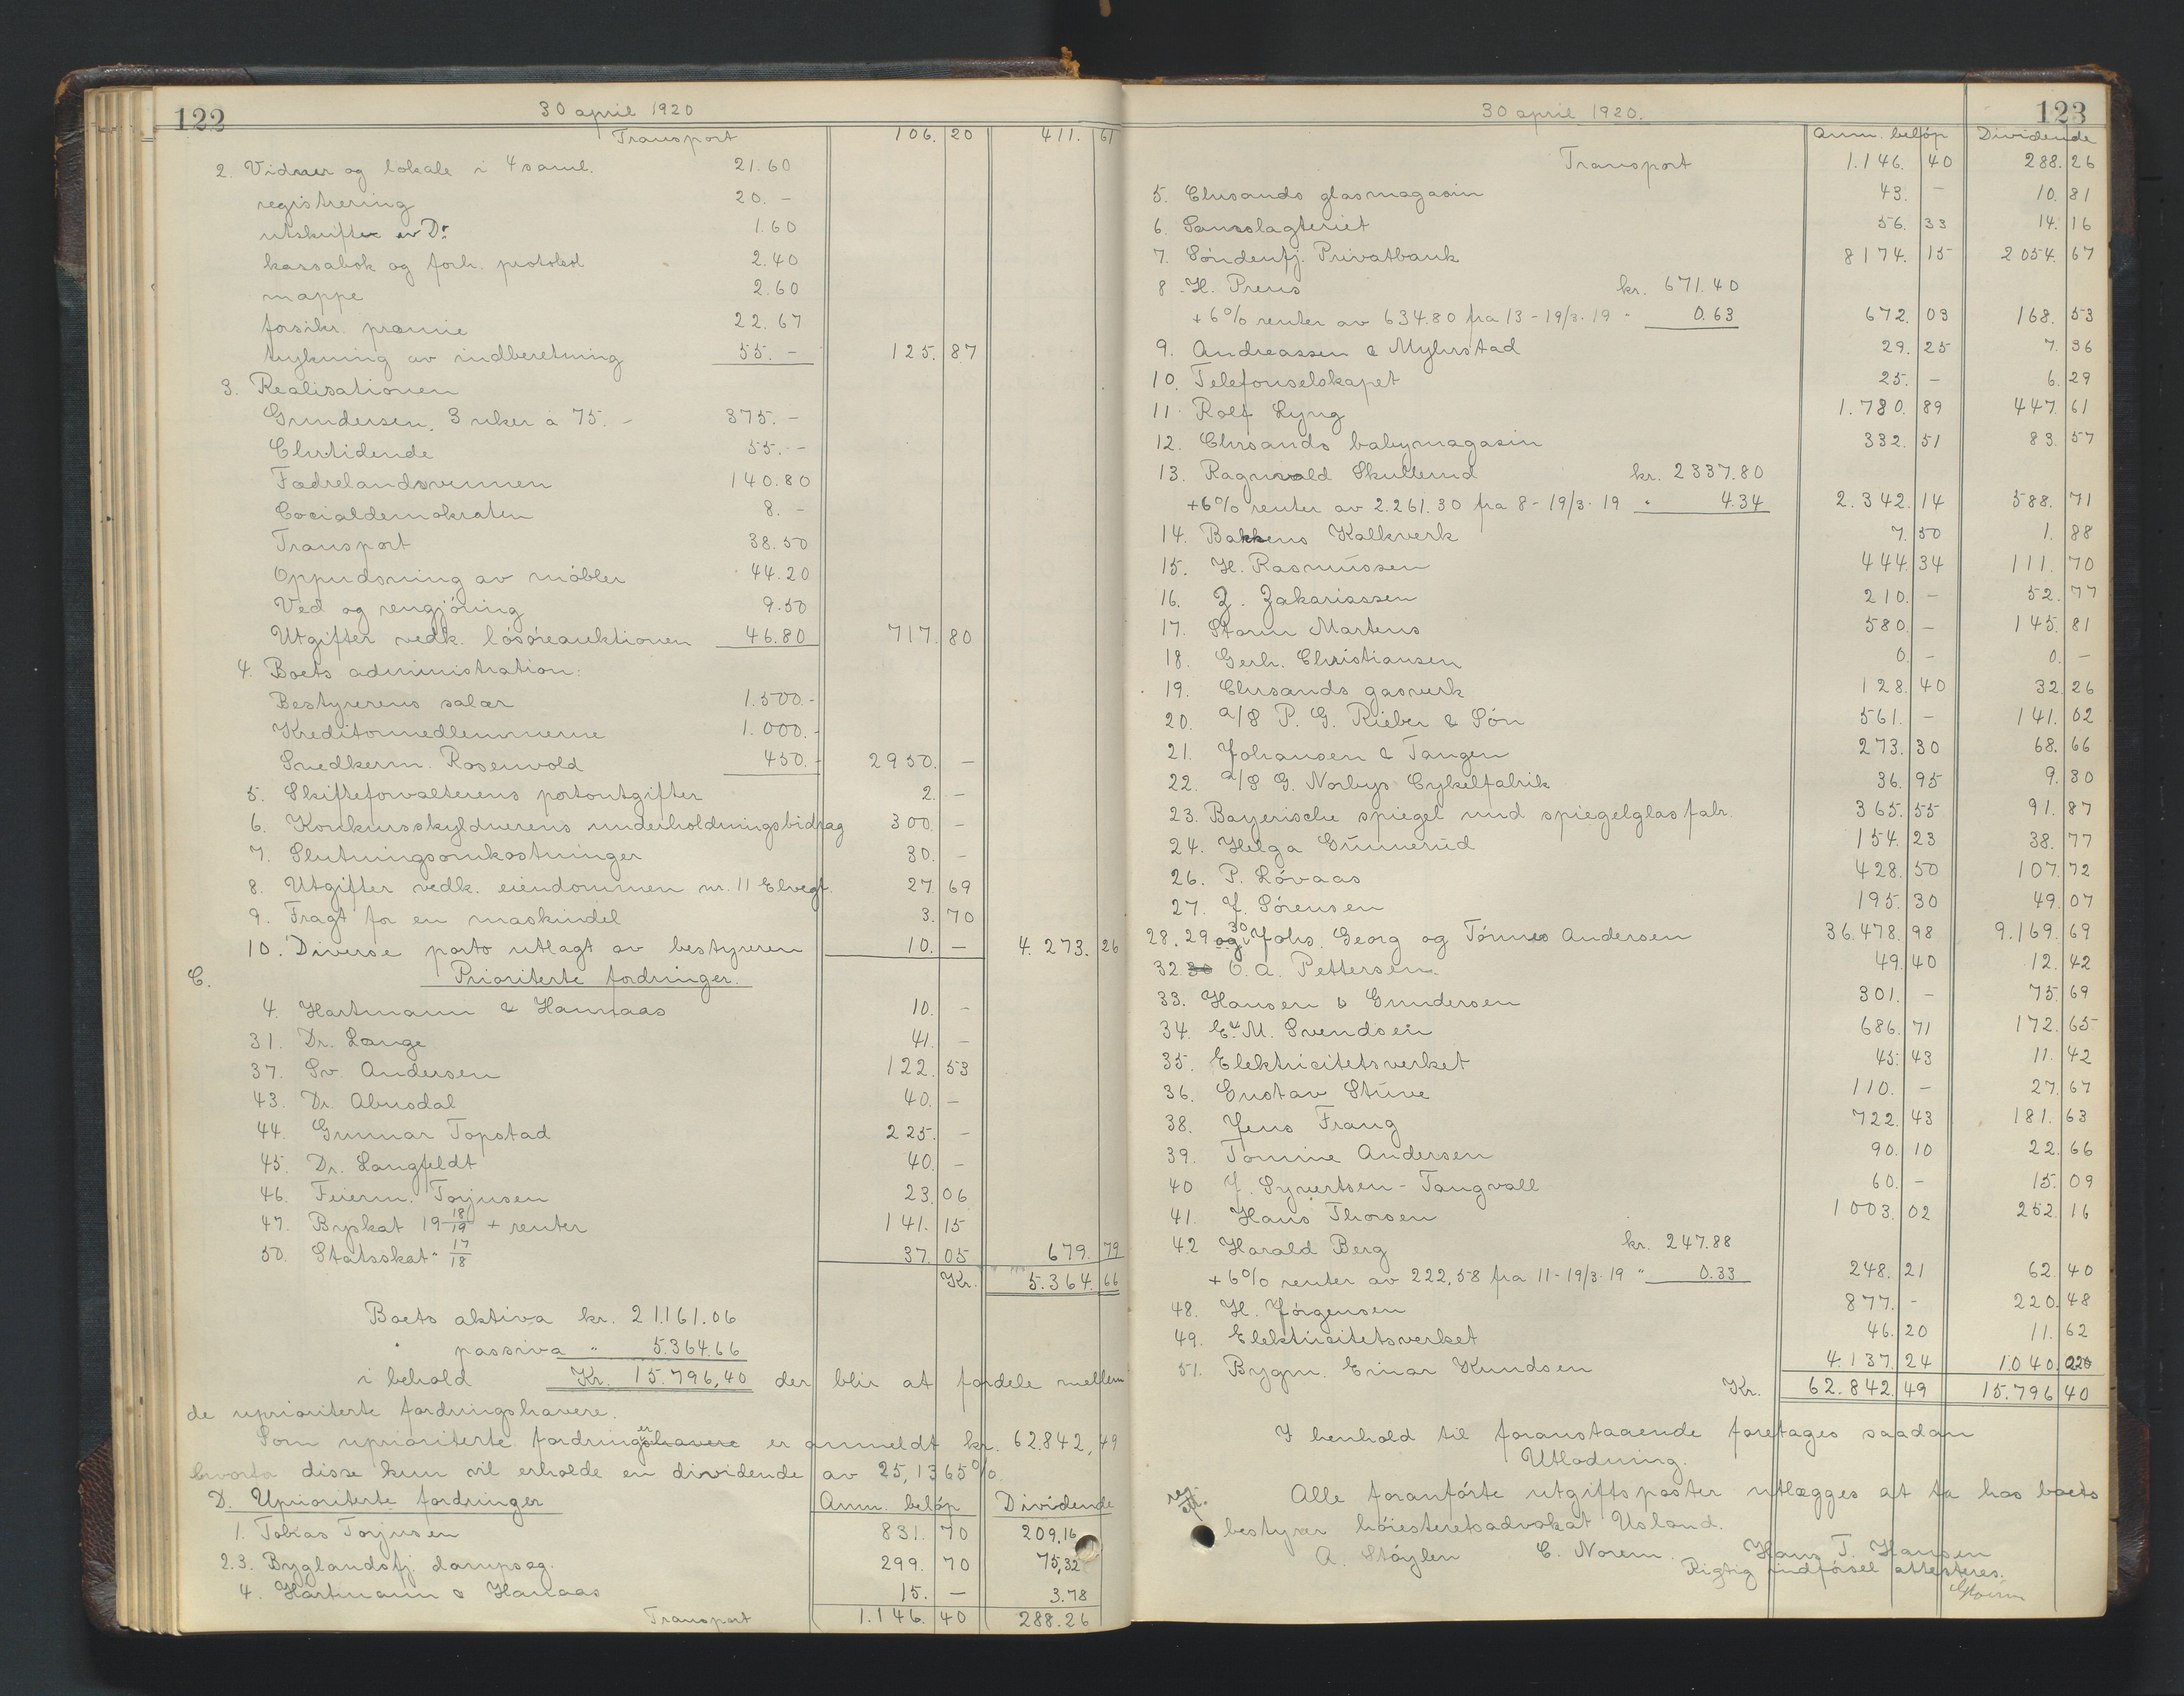 122
30 april 1920
Transport 106. 20 411. 61
2. Vidner og lokale i 4 saml. 21.60
registrering 20. -
utskrifter av Do 1.60
kassabok og forh. protokol 2.40
mappe 2.60
forsikr. præmie 22.67
trykning av indberetning 55. - 125. 87
3. Realisationen
Gundersen, 3 uker a 75. - 375. -
Chrtidende 55. -
Fædrelandsvennen 140.80
Socialdemokraten 8. -
Transport 38.50
Oppudsning av møbler 44.20
Ved og rengjøring 9.50
Utgifter vedk. løsøreauktionen 46.80 717. 80
4. Boets administration:
Bestyrerens salær 1.500. -
Kreditormedlemmerne 1.000. -
Snedkerm. Rosenvold 450. - 2950. -
5. Skifteforvalterens portoutgifter 2. -
6. Konkursskyldnerens underholdningsbidrag 300. -
7. Slutningsomkostninger 30. -
8. Utgifter vedk. eiendommen nr. 11 Elvegt. 27. 69
9. Fragt for en maskindel 3. 70
10. Diverse porto utlagt av bestyreren 10. - 4.273. 26
C. Prioriterte fordringer.
4. Hartmann & Hannaas 10. -
31. Dr. Lange 41. -
37. Sv. Andersen 122. 53
43. Dr. Abusdal 40. -
44. Gunnar Topstad 225. -
45. Dr. Langfeldt 40. -
46. Feierm. Torjusen 23. 06
47. Byskat 19 18/19 + renter 141. 15
50. Statsskat " 17/18 37. 05 679. 79
Kr. 5.364. 66
Boets aktiva kr. 21.161.06
" passiva " 5.364.66
i behold Kr. 15.796,40 der blir at fordele mellem
de uprioriterte fordringshavere.
Som uprioriterte fordringer er anmeldt kr. 62.842,49
hvorfor disse kun vil erholde en dividende av 25,1365%.
D. Uprioriterte fordringer Anm. beløp Dividende
1. Tobias Torjusen 831. 70 209,16
2.3. Byglandsfj. dampsag. 299. 70 75,32
4. Hartmann & Hanaas 15. - 3.78
Transport 1.146. 40 288.26
123
30 april 1920.
Anm. beløp Dividende
Transport 1.146. 40 288. 26
5. Chrsands glasmagasin 43. - 10. 81
6. Samslagteriet 56. 33 14. 16
7. Søndenfj. Privatbank 8174. 15 2054. 67
8. H. Preus kr. 671.40
+ 6% renter av 634.80 fra 13-19/3-19 " 0.63 672. 03 168. 53
9. Andreassen & Myhrstad 29. 25 7. 36
10. Telefonselskapet 25. - 6. 29
11. Rolf Lyng 1.780. 89 447. 61
12. Chrsands babymagasin 332. 51 83. 57
13. Ragnvald Skutlerud kr. 2337.80
+6% renter av 2.261.30 fra 8-19/3-19 " 4.34 2.342. 14 588. 71
14. Bakkens Kalkverk 7. 50 1. 88
15. H. Rasmussen 444. 34 111. 70
16. Z. Zakariassen 210. - 52. 77
17. Storm Martens 580. - 145. 81
18. Gerh. Christiansen 0. - 0. -
19. Chrsands gasverk 128. 40 32. 26
20. a/S P. G. Rieber & Søn 561. - 141. 02
21. Johansen & Tangen 273. 30 68. 66
22. a/S G. Norbys Cykelfabrik 36. 95 9. 30
23. Bayerische spiegel und spiegelglas fabr. 365. 55 91. 87
24. Helga Gunnerud 154. 23 38. 77
26. P. Løvaas 428. 50 107. 72
27. J. Sørensen 195. 30 49. 07
28, 29 og 30 Johs. Georg og Tønnes Andersen 36.478. 98 9.169. 69
32 30 O. A. Pettersen 49. 40 12. 42
33. Hansen & Gundersen 301. - 75. 69
34. E. M. Svendsen 686. 71 172. 65
35. Elektricitetsverket 45. 43 11. 42
36. Gustav Stuve 110. - 27. 67
38. Jens Frang 722. 43 181. 63
39. Tomine Andersen 90. 10 22. 66
40 J. Syvertsen - Tangvall 60. - 15. 09
41. Hans Thorsen 1003. 02 252. 16
42 Harald Berg kr. 247.88
+ 6% renter av 222,58 fra 11-19/3-19 " 0.33 248. 21 62. 40
48. H. Jørgensen 877. - 220. 48
49. Elektricitetsverket 46. 20 11. 62
51. Bygm. Einar Knudsen 4.137. 24 1.040.
Kr. 62.842. 49 15.796 40
I henhold til foranstaaende foretages saadan
Utlodning.
Alle foranførte utgiftsposter utlægges at ta hos boets
bestyrer høiesteretsadvokat Usland.
A. Støylen C. Norem. Hans T. Hansen
Rigtig indførsel attesteres.